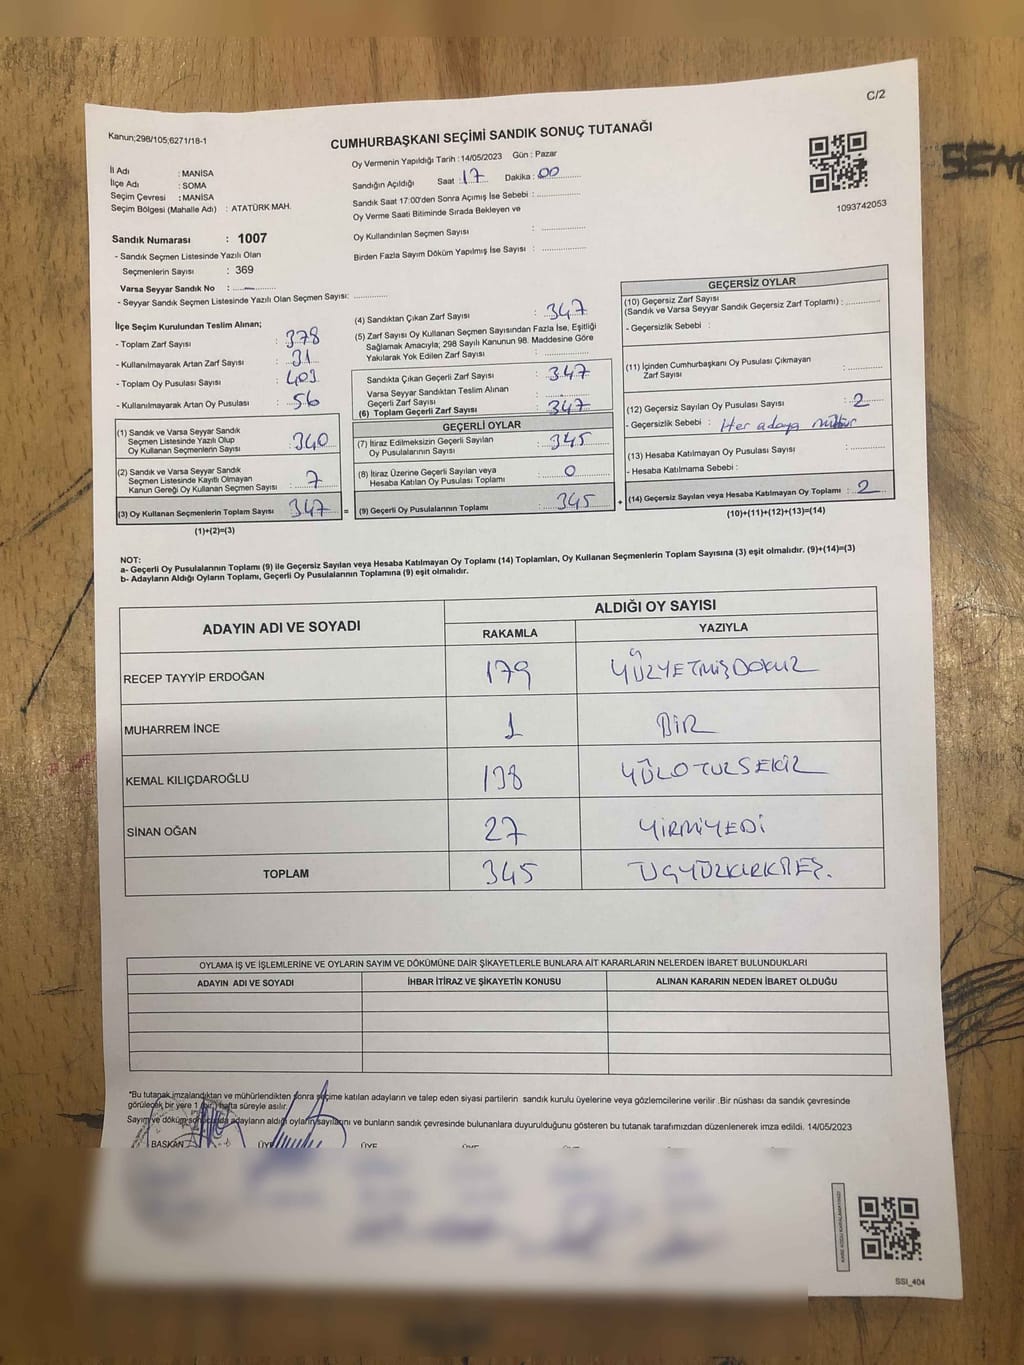 C/2
Kanun;298/105;6271/18-1
CUMHURBAŞKANI SEÇİMİ SANDIK SONUÇ TUTANAĞI
Oy Vermenin Yapıldığı Tarih :14/05/2023 Gün : Pazar
İl Adı : MANİSA
İlçe Adı : SOMA
Seçim Çevresi : MANİSA
Seçim Bölgesi (Mahalle Adı) : ATATÜRK MAH.
Sandığın Açıldığı Saat : 17 Dakika : 00
Sandık Saat 17:00'den Sonra Açımış İse Sebebi :
Oy Verme Saati Bitiminde Sırada Bekleyen ve
Oy Kullandırılan Seçmen Sayısı :
Birden Fazla Sayım Döküm Yapılmış İse Sayısı :
1093742053
Sandık Numarası : 1007
- Sandık Seçmen Listesinde Yazılı Olan
Seçmenlerin Sayısı : 369
Varsa Seyyar Sandık No : —
- Seyyar Sandık Seçmen Listesinde Yazılı Olan Seçmen Sayısı:
İlçe Seçim Kurulundan Teslim Alınan;
- Toplam Zarf Sayısı : 378
- Kullanılmayarak Artan Zarf Sayısı : 31
- Toplam Oy Pusulası Sayısı : 403
- Kullanılmayarak Artan Oy Pusulası : 56
(1) Sandık ve Varsa Seyyar Sandık
Seçmen Listesinde Yazılı Olup
Oy Kullanan Seçmenlerin Sayısı : 340
(2) Sandık ve Varsa Seyyar Sandık
Seçmen Listesinde Kayıtlı Olmayan
Kanun Gereği Oy Kullanan Seçmen Sayısı : 7
(3) Oy Kullanan Seçmenlerin Toplam Sayısı : 347 =
(1)+(2)=(3)
(4) Sandıktan Çıkan Zarf Sayısı : 347
(5) Zarf Sayısı Oy Kullanan Seçmen Sayısından Fazla İse, Eşitliği
Sağlamak Amacıyla; 298 Sayılı Kanunun 98. Maddesine Göre
Yakılarak Yok Edilen Zarf Sayısı :
Sandıkta Çıkan Geçerli Zarf Sayısı : 347
Varsa Seyyar Sandıktan Teslim Alınan
Geçerli Zarf Sayısı :
(6) Toplam Geçerli Zarf Sayısı : 347
GEÇERLİ OYLAR
(7) İtiraz Edilmeksizin Geçerli Sayılan
Oy Pusulalarının Sayısı : 345
(8) İtiraz Üzerine Geçerli Sayılan veya
Hesaba Katılan Oy Pusulası Toplamı : 0
(9) Geçerli Oy Pusulalarının Toplamı : 345 +
GEÇERSİZ OYLAR
(10) Geçersiz Zarf Sayısı
(Sandık ve Varsa Seyyar Sandık Geçersiz Zarf Toplamı) :
- Geçersizlik Sebebi :
(11) İçinden Cumhurbaşkanı Oy Pusulası Çıkmayan
Zarf Sayısı :
(12) Geçersiz Sayılan Oy Pusulası Sayısı : 2
- Geçersizlik Sebebi : Her adaya mühür
(13) Hesaba Katılmayan Oy Pusulası Sayısı :
- Hesaba Katılmama Sebebi :
(14) Geçersiz Sayılan veya Hesaba Katılmayan Oy Toplamı : 2
(10)+(11)+(12)+(13)=(14)
NOT:
a- Geçerli Oy Pusulalarının Toplamı (9) ile Geçersiz Sayılan veya Hesaba Katılmayan Oy Toplamı (14) Toplamları, Oy Kullanan Seçmenlerin Toplam Sayısına (3) eşit olmalıdır. (9)+(14)=(3)
b- Adayların Aldığı Oyların Toplamı, Geçerli Oy Pusulalarının Toplamına (9) eşit olmalıdır.
ADAYIN ADI VE SOYADI ALDIĞI OY SAYISI
RAKAMLA YAZIYLA
RECEP TAYYİP ERDOĞAN 179 YÜZYETMİŞDOKUZ
MUHARREM İNCE 1 BİR
KEMAL KILIÇDAROĞLU 138 YÜZOTUZSEKİZ
SİNAN OĞAN 27 YİRMİYEDİ
TOPLAM 345 ÜÇYÜZKIRKBEŞ.
OYLAMA İŞ VE İŞLEMLERİNE VE OYLARIN SAYIM VE DÖKÜMÜNE DAİR ŞİKAYETLERLE BUNLARA AİT KARARLARIN NELERDEN İBARET BULUNDUKLARI
ADAYIN ADI VE SOYADI İHBAR İTİRAZ VE ŞİKAYETİN KONUSU ALINAN KARARIN NEDEN İBARET OLDUĞU
*Bu tutanak imzalandıktan ve mühürlendikten sonra seçime katılan adayların ve talep eden siyasi partilerin sandık kurulu üyelerine veya gözlemcilerine verilir .Bir nüshası da sandık çevresinde
görülecek bir yere 1 (bir) hafta süreyle asılır.
Sayım ve döküm sonucunda adayların aldığı oyların sayılarını ve bunların sandık çevresinde bulunanlara duyurulduğunu gösteren bu tutanak tarafımızdan düzenlenerek imza edildi. 14/05/2023
BAŞKAN ÜYE ÜYE
SSI_404